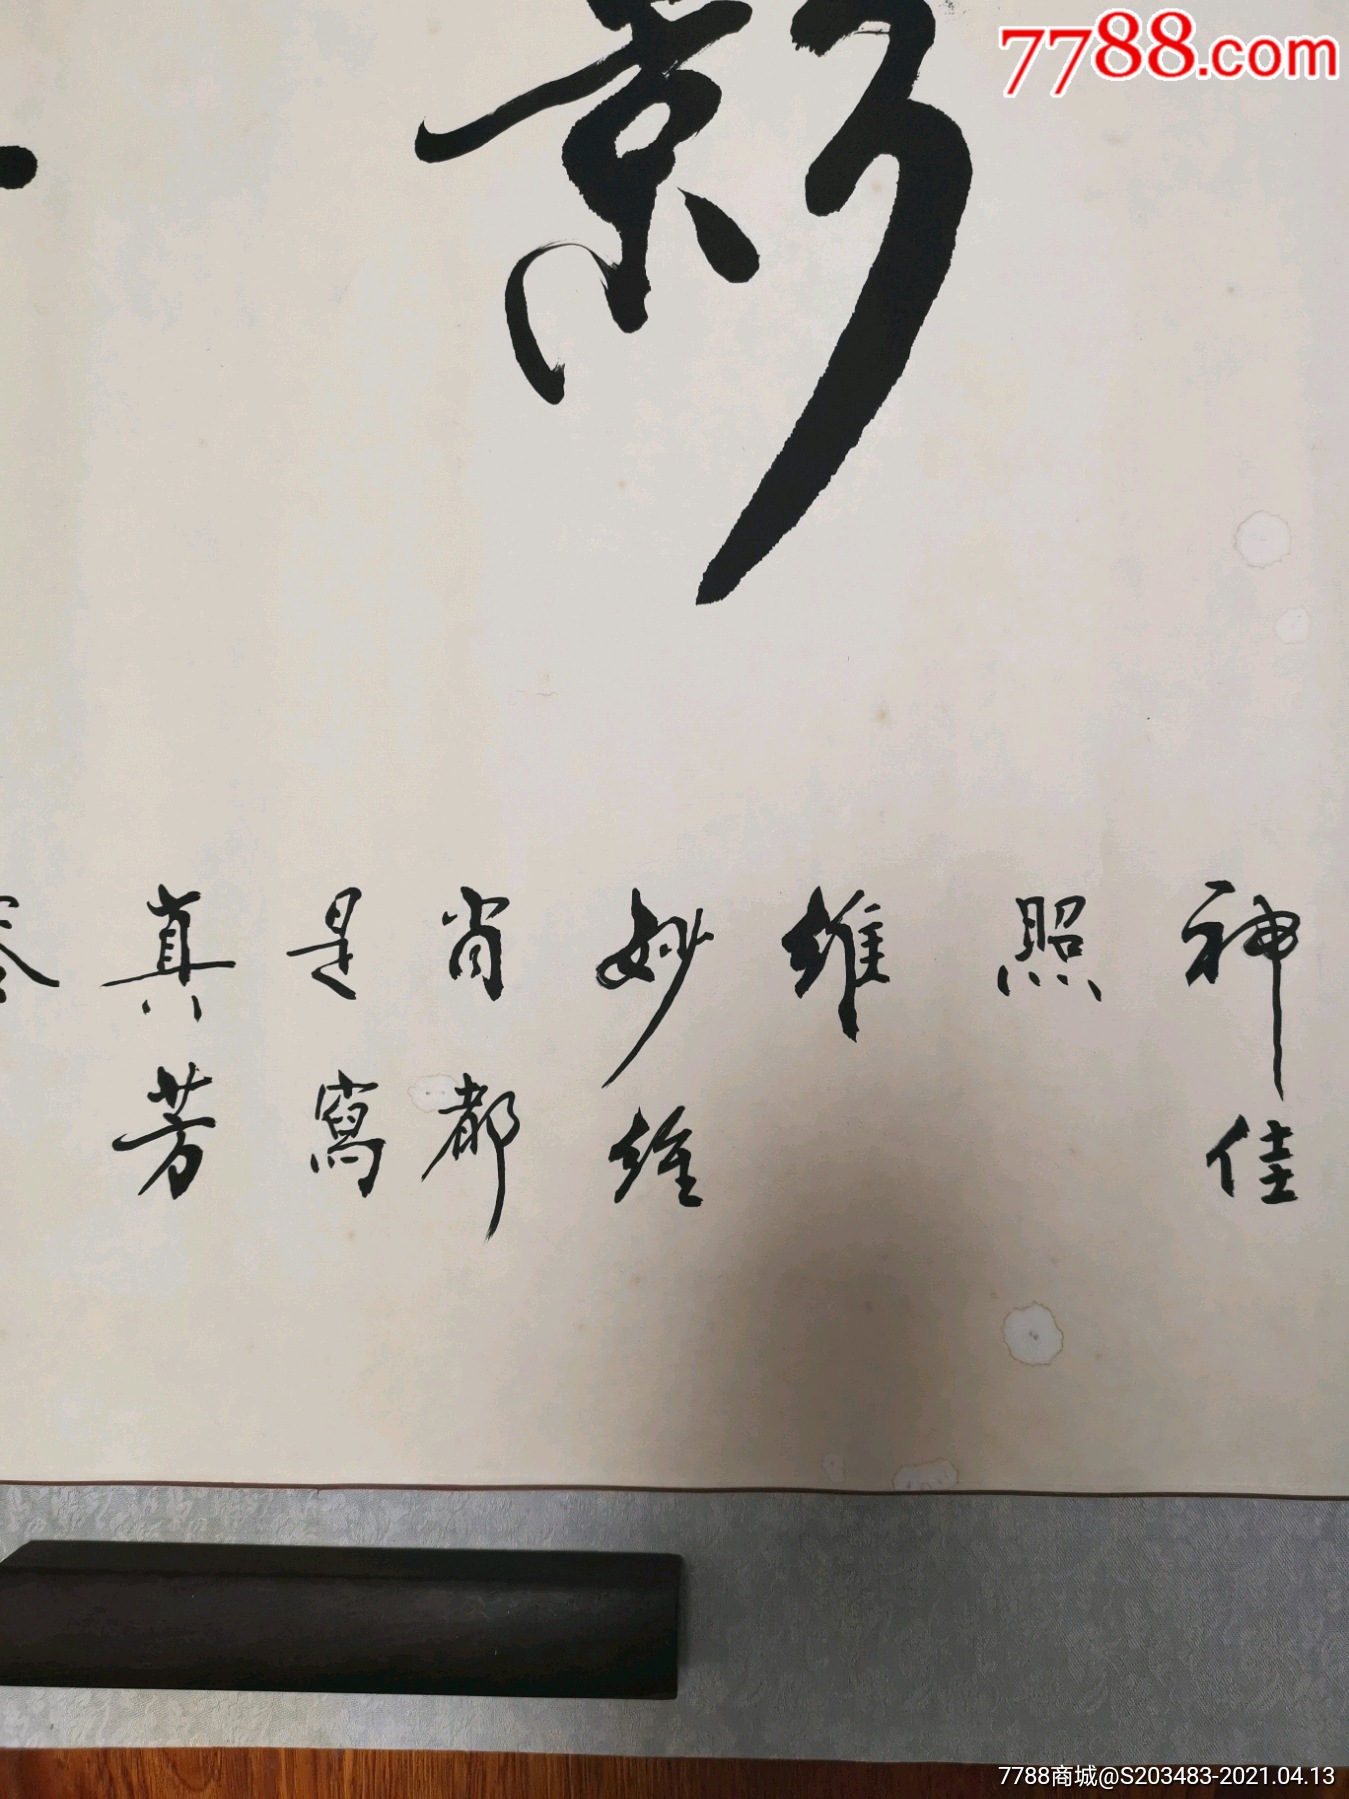 7788.com
影
神佳
照
維
妙維
肖都
是寫
真芳
7788商城@S203483-2021.04.13